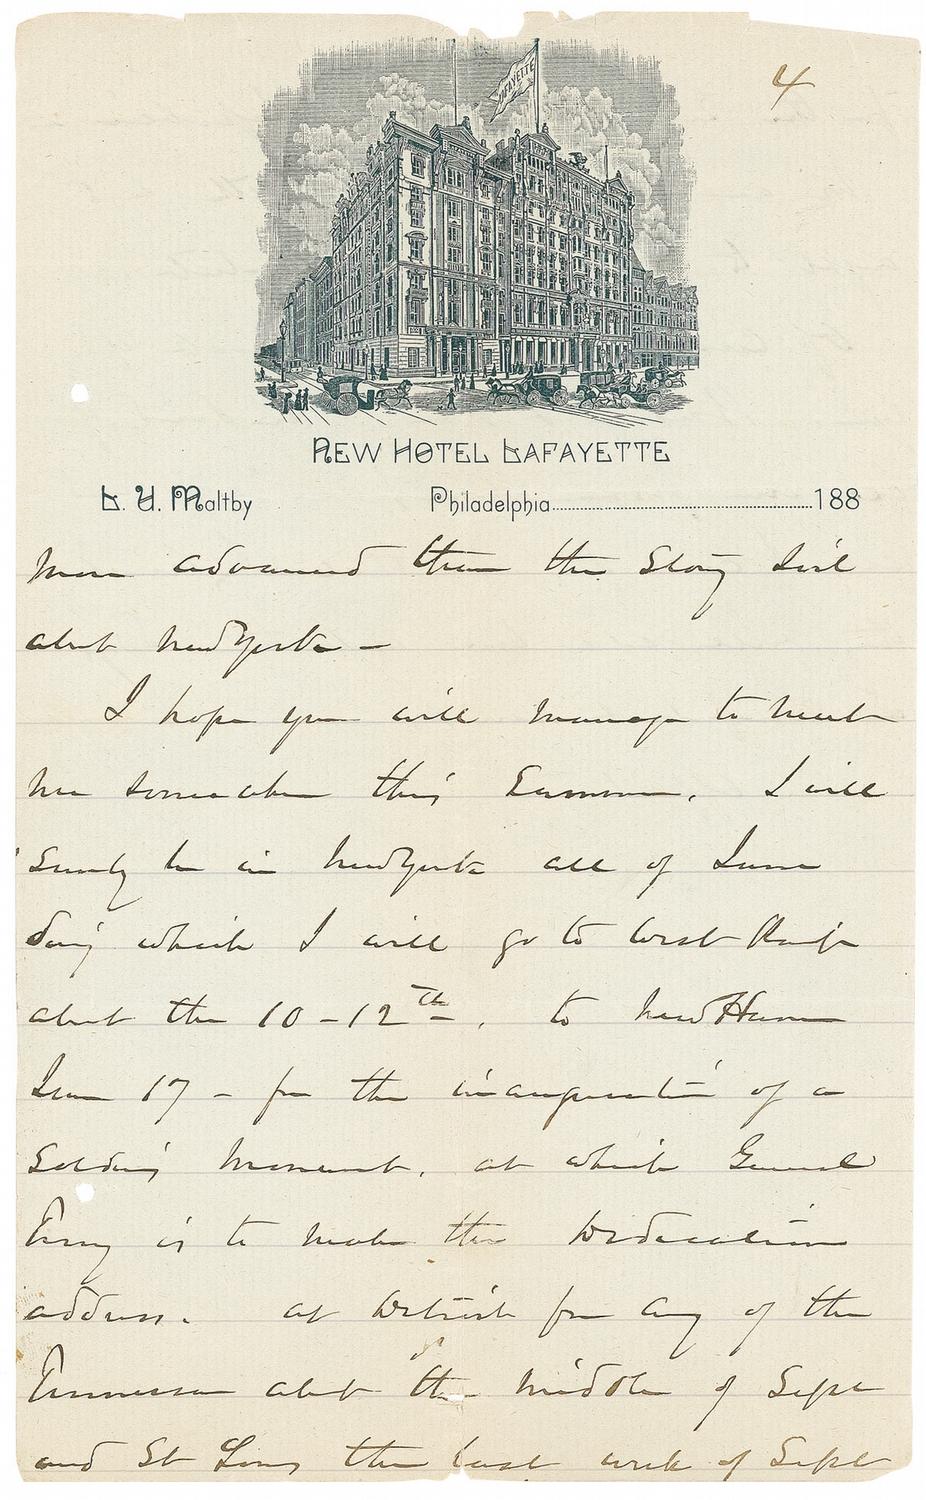 4
LAFAYETTE
NEW HOTEL LAFAYETTE
L. U. Maltby Philadelphia 188
more advanced than the Story
about New York –
I hope you will manage to meet
me somewhere this Summer. I will
surely be in New York all of June
during which I will go to West Point
about the 10–12th, to New Haven
June 17 – for the inauguration of a
Soldiers Monument, at which General
Terry is to make the Dedication
address. at Detroit for Army of the
Tennessee about the middle of Sept
and St Louis the last week of Sept